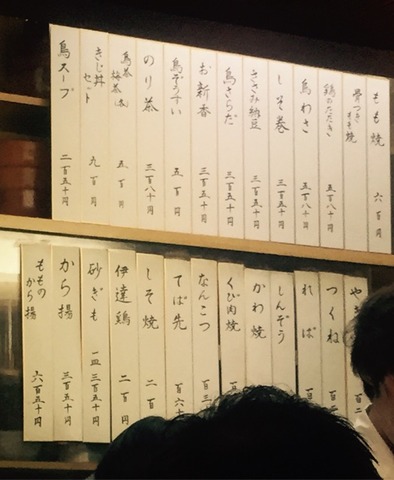 もも焼 六百円
骨つき
もも焼
鶏のたたき 五百八十円
鳥わさ 五百八十円
しそ巻 三百五十円
ささみ納豆 三百五十円
鳥さらだ 三百五十円
お新香 三百五十円
鳥ぞうすい 五百円
のり茶 三百八十円
鳥茶
梅茶(各) 五百円
きじ丼
セット 九百円
鳥スープ 二百五十円
や
つくね 百二
れば
しんぞう
かわ焼
くび肉焼
なんこつ 百三
てば先 百六十
しそ焼 二百
伊達鶏 二百円
砂ぎも 一皿 三百五十円
から揚 三百五十円
ももの
から揚 六百五十円